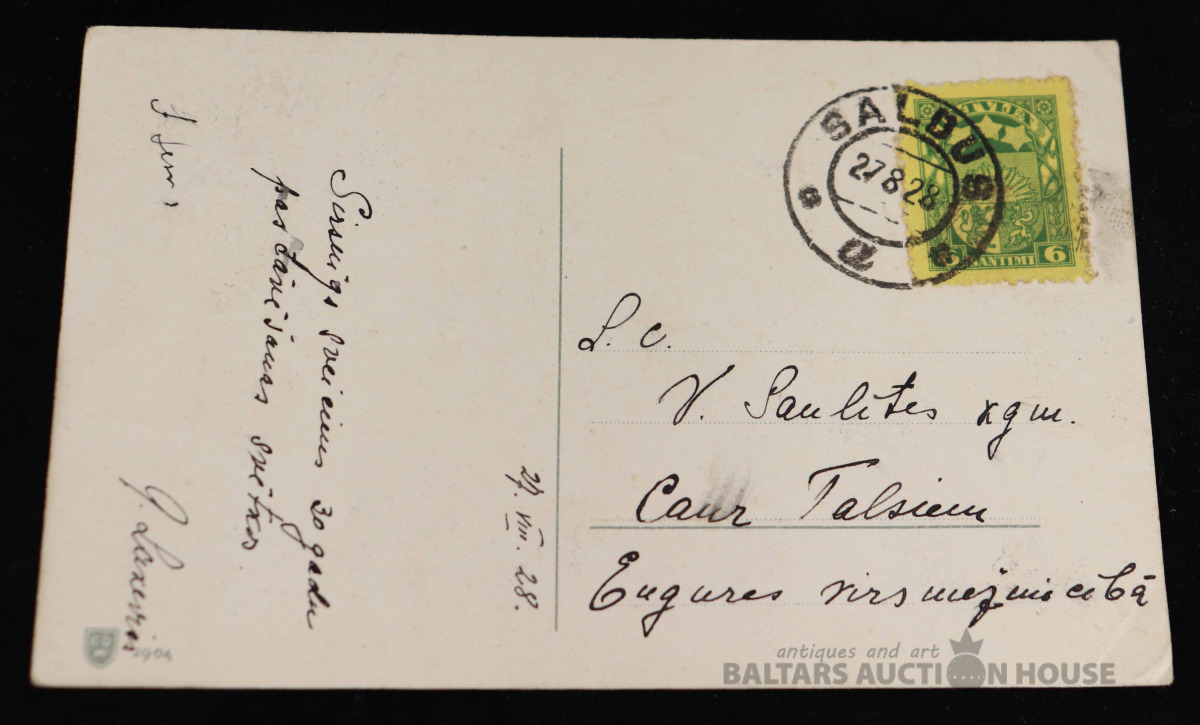 27. VIII. 28.
Sirsnīgs sveiciens 30 gadu
pastāvēšanas svētkos.
SALDUS
27 8 28
LATVIJA
6 SANTIMI 6
L. c.
V. Saulītes kgm.
Caur Talsiem
Engures virsmežniecībā
1904
antiques and art
BALTARS AUCTION HOUSE